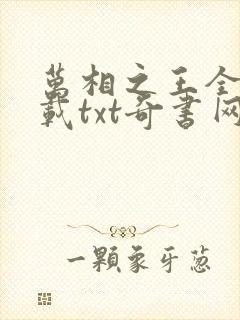 萬相之王全
載txt奇書网
一顆象牙蔥